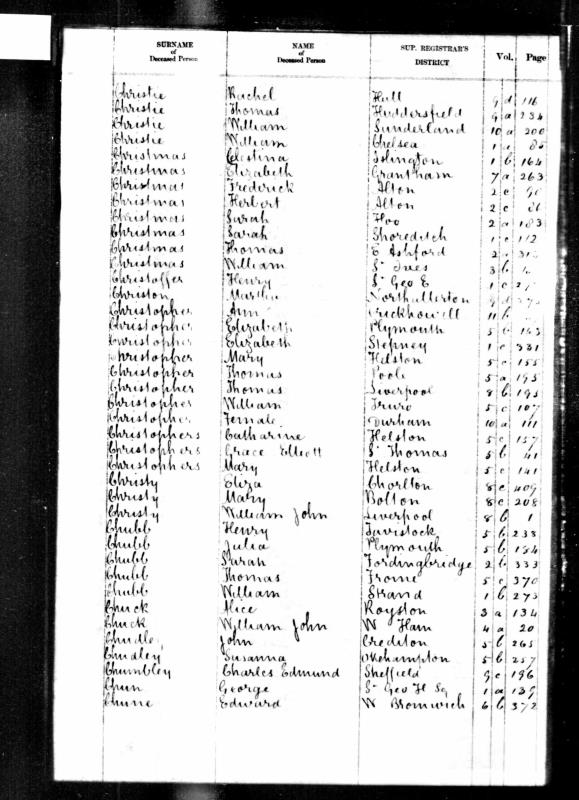 SURNAME of Deceased Person NAME of Deceased Person SUP. REGISTRAR'S DISTRICT Vol. Page
Christie Rachel Hull 9 d 116
Christie Thomas Huddersfield 9 a 234
Christie William Sunderland 10 a 200
Christie William Chelsea 1 a
Christmas Celestina Islington 1 b 164
Christmas Elizabeth Grantham 7 a 263
Christmas Frederick Alton 2 c
Christmas Herbert Alton 2 c
Christmas Sarah Hoo 2 a 183
Christmas Sarah Shoreditch 1 c 112
Christmas Thomas E Ashford 2 a
Christmas William St Ives 3 b
Christoffer Henry St Geo E 1 c
Christon Martha Northallerton 9 d
Christopher Ann Crickhowell 11 b
Christopher Elizabeth Plymouth 5 b 163
Christopher Elizabeth Stepney 1 c 331
Christopher Mary Helston 5 c 155
Christopher Thomas Poole 5 a 195
Christopher Thomas Liverpool 8 b 195
Christopher William Truro 5 c 107
Christopher Female Durham 10 a 111
Christophers Catharine Helston 5 c 157
Christophers Grace Elliott St Thomas 5 b 41
Christophers Mary Helston 5 c 141
Christy Eliza Chorlton 8 c 409
Christy Mary Bolton 8 c 208
Christy William John Liverpool 8 b 1
Chubb Henry Tavistock 5 b 238
Chubb Julia Plymouth 5 b 184
Chubb Sarah Fordingbridge 2 b 333
Chubb Thomas Frome 5 c 370
Chubb William Strand 1 b 273
Chuck Alice Royston 3 a 134
Chuck William John W Ham 4 a 20
Chudle John Crediton 5 b 265
Chudley Susanna Okehampton 5 b 257
Chumbley Charles Edmund Sheffield 9 c 196
Chun George St Geo H Sq 1 a 139
Chune Edward W Bromwich 6 b 372